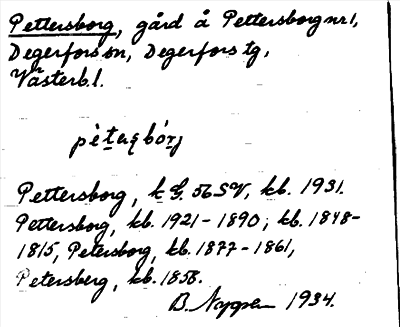 Pettersborg, gård å Pettersborg nr 1,
Degerfors sn, Degerfors tg,
Västerb. l.
Pettersborg, k G. 56 SV, kb. 1931.
Pettersborg, kb. 1921-1890; kb. 1848-
1815, Petersborg, kb. 1877-1861,
Petersberg, kb. 1858.
B. 1934.